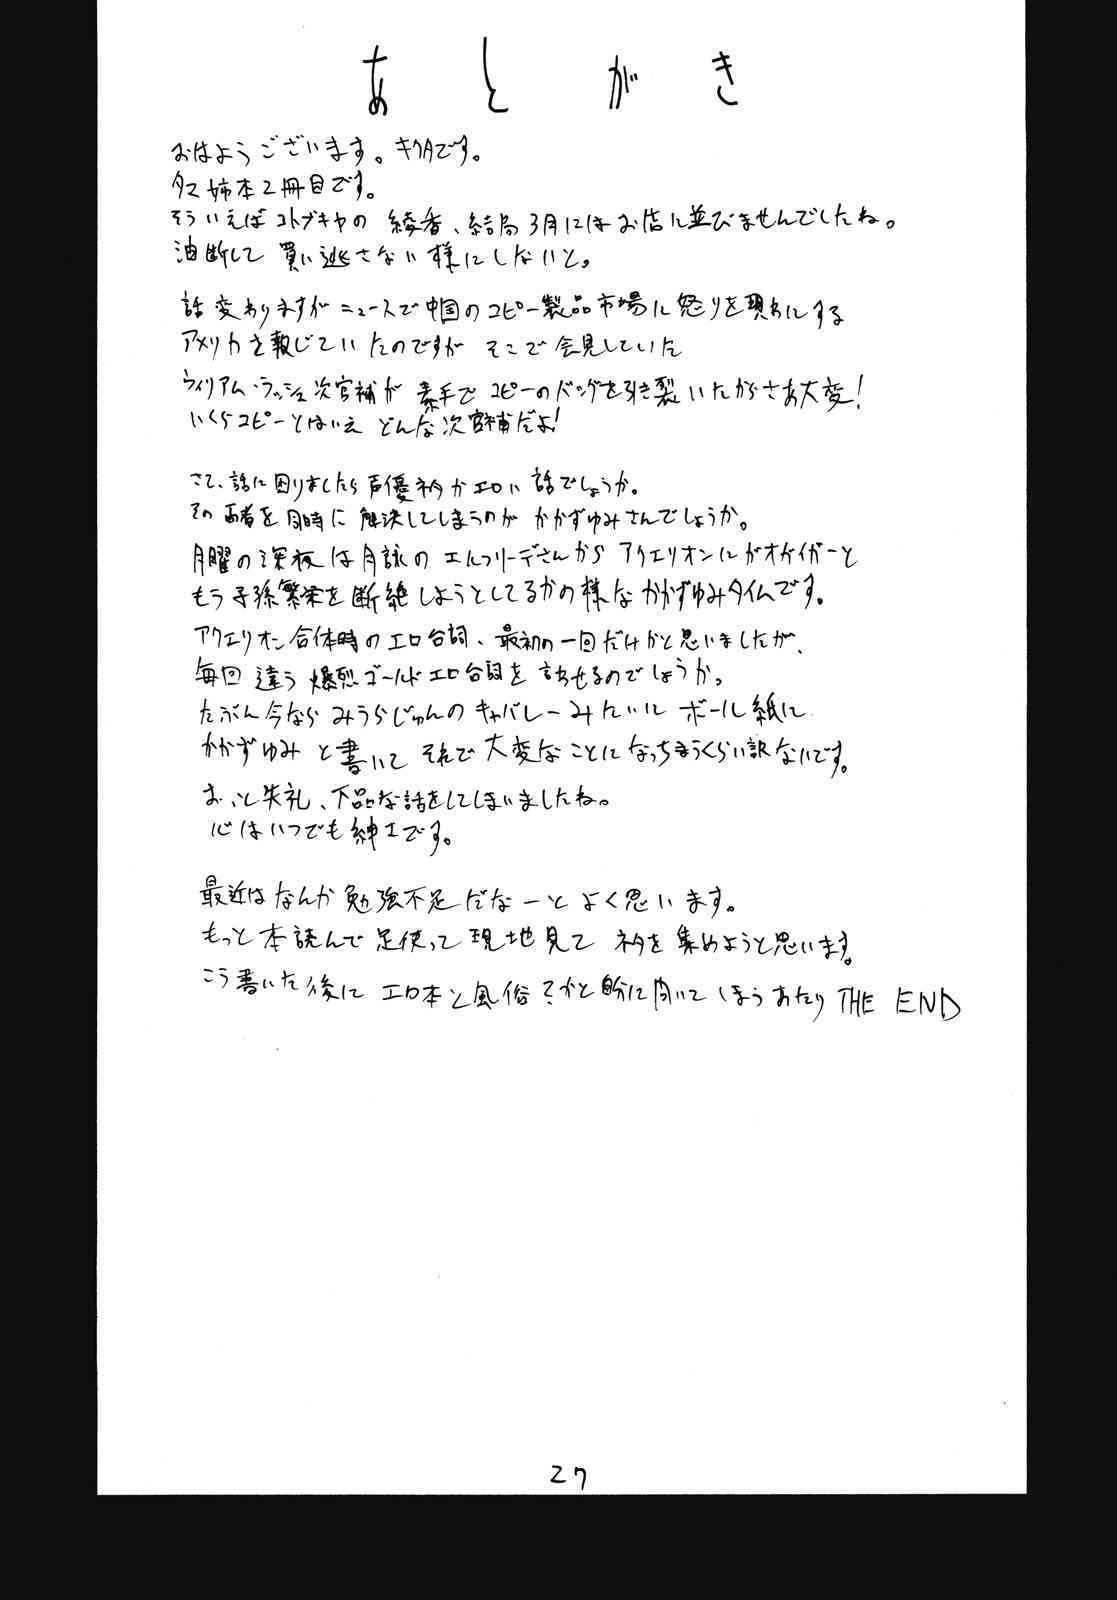 あとがき
おはようございます。キクタです。
タマ姉本2冊目です。
そういえばコトブキヤの綾香、結局3月にはお店に並びませんでしたね。
油断して買い逃さない様にしないと。
話変わりますがニュースで中国のコピー製品市場に怒りを現わにする
アメリカを報じていたのですがそこで会見していた
ウィリアム・ラッシュ次官補が素手でコピーのバッグを引き裂いたからさあ大変!
いくらコピーとはいえどんな次官補だよ!
さて、話に困りましたら声優ネタかエロい話でしょうか。
その両者を同時に解決してしまうのがかかずゆみさんでしょうか。
月曜の深夜は月詠のエルフリーデさんからアクエリオンにガオガイガーと
もう子孫繁栄を断絶しようとしてるかの様なかかずゆみタイムです。
アクエリオン合体時のエロ台詞、最初の一回だけかと思いましたが、
毎回違う爆烈ゴールドエロ台詞を言わせるのでしょうか。
たぶん今ならみうらじゅんのキャバレーみたいにボール紙に
かかずゆみと書いてそれで大変なことになっちまうくらい訳ないです。
おっと失礼、下品な話をしてしまいましたね。
心はいつでも紳士です。
最近はなんか勉強不足だなーとよく思います。
もっと本読んで足使って現地見てネタを集めようと思います。
こう書いた後にエロ本と風俗?かと自分に聞いてしまうあたりTHE END
27